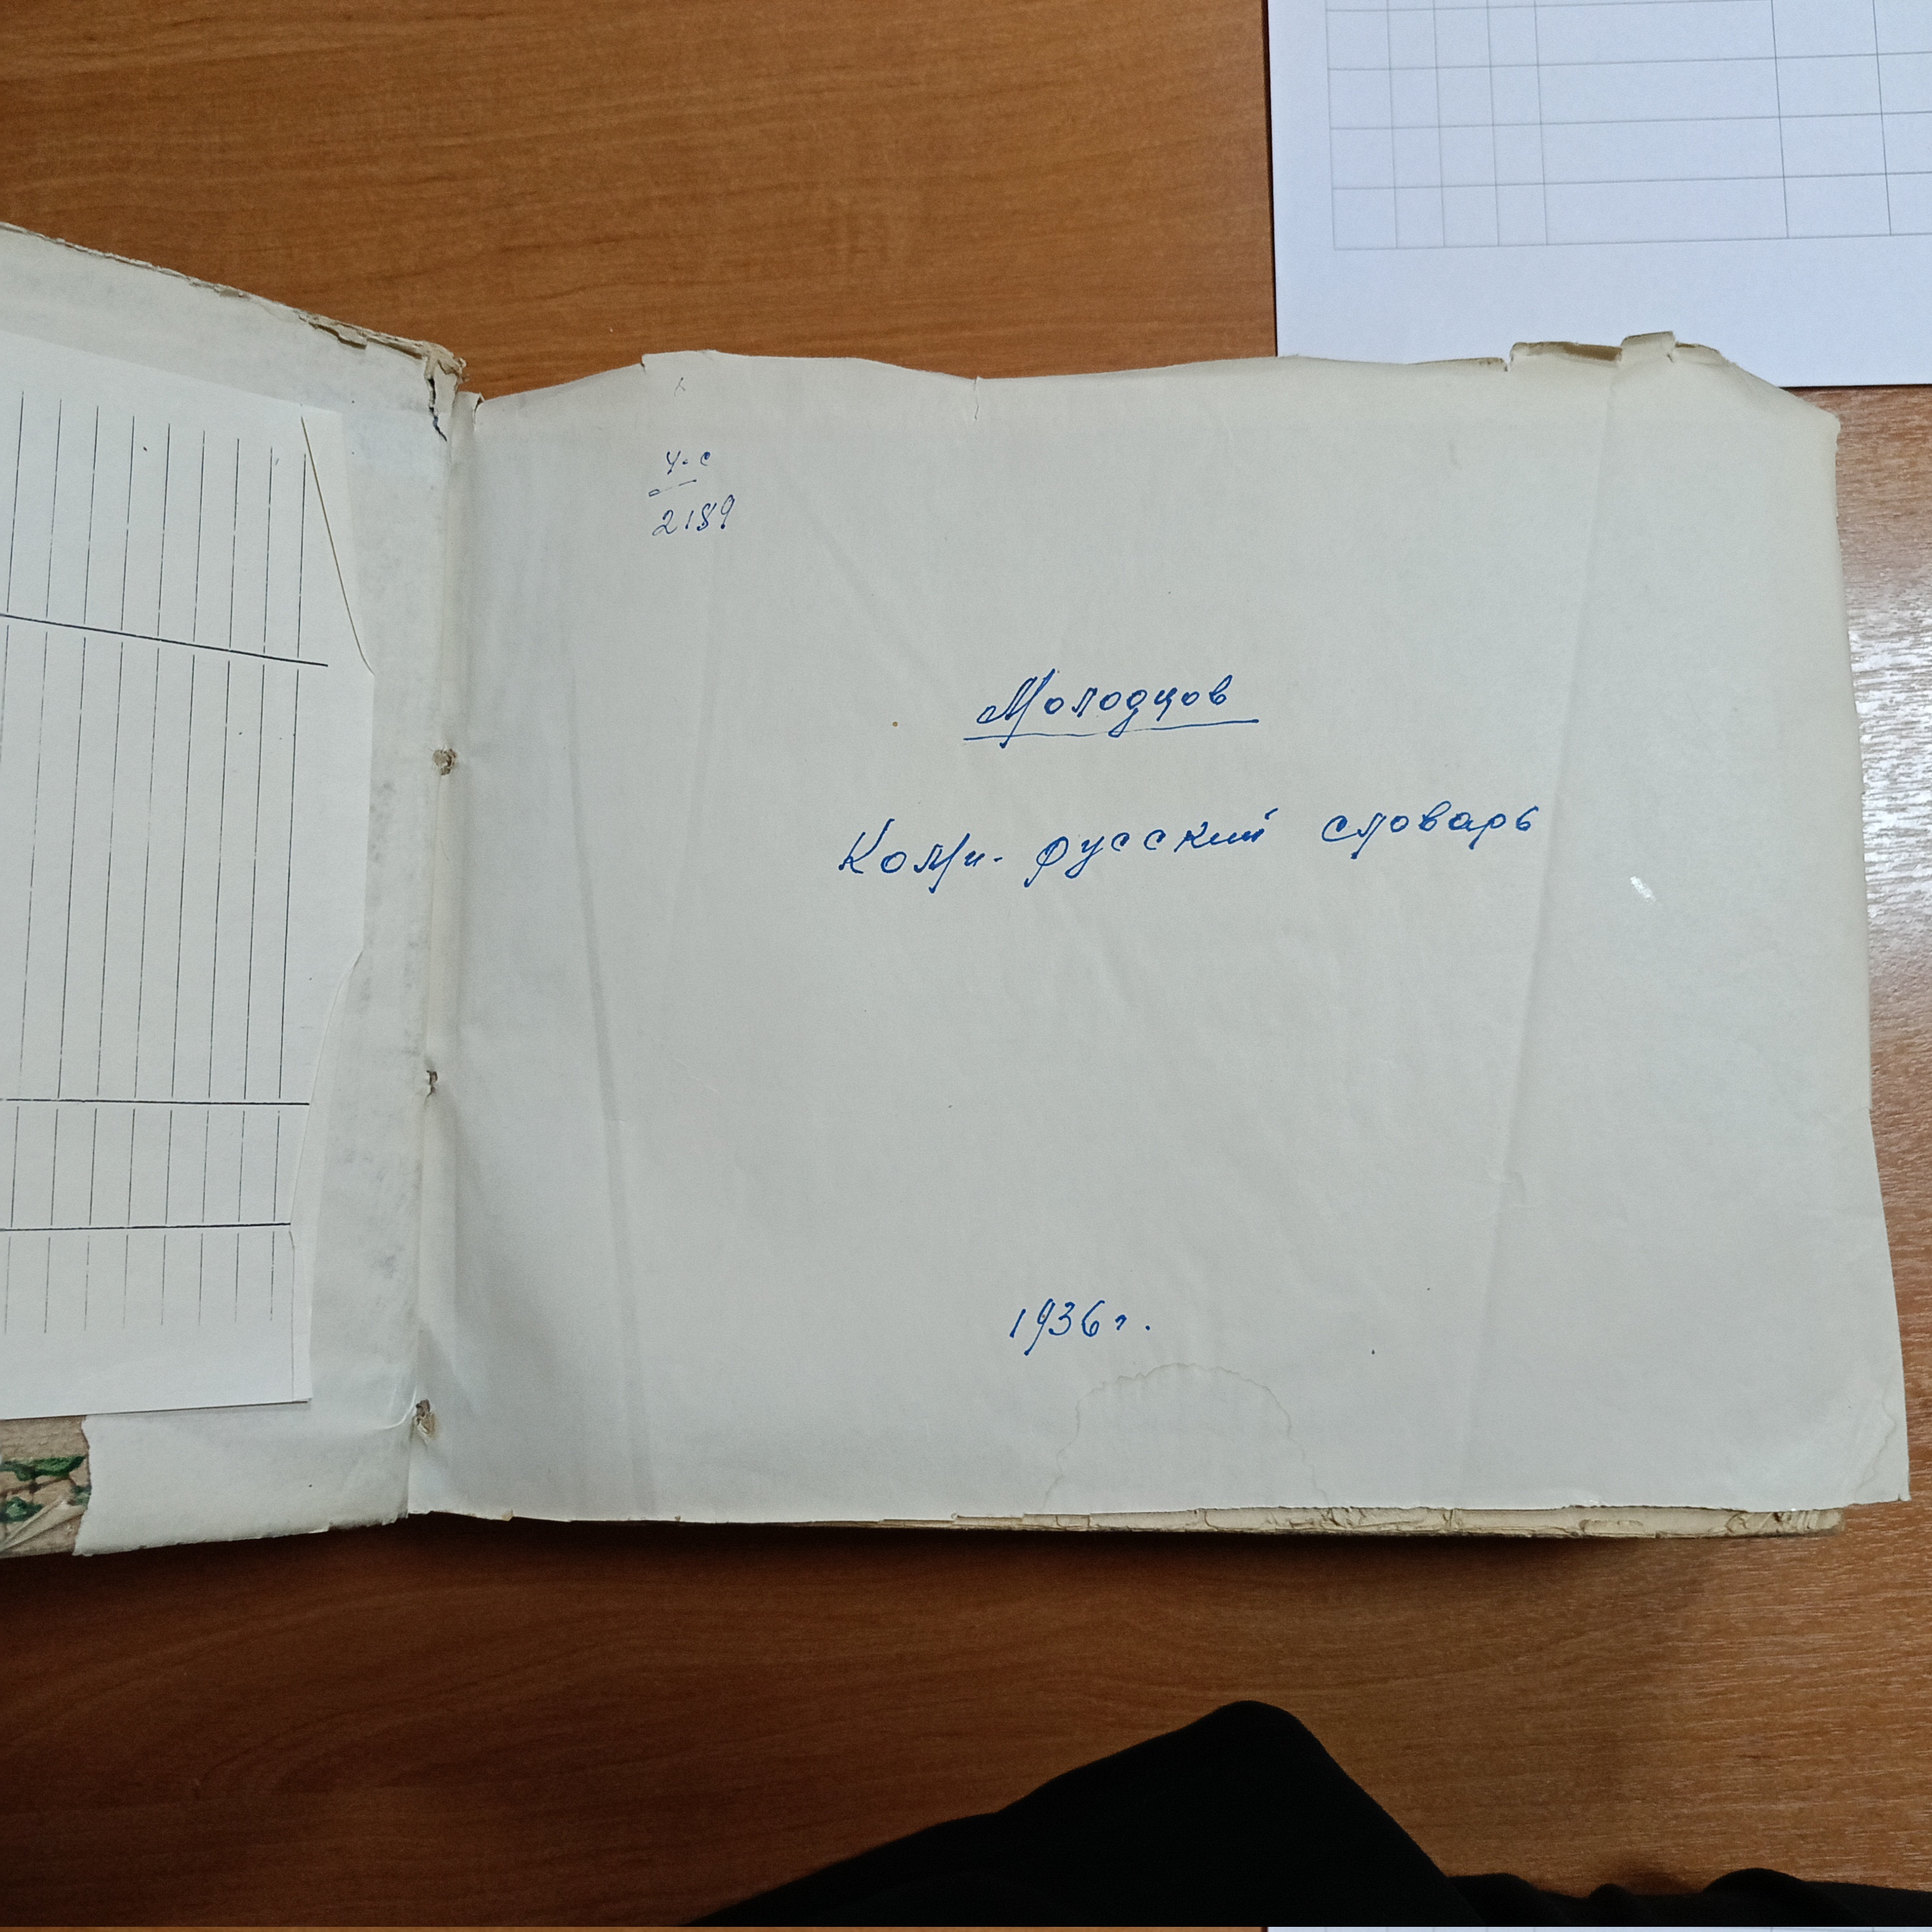 2189
Молодцов
Коми-русский словарь
1936 г.